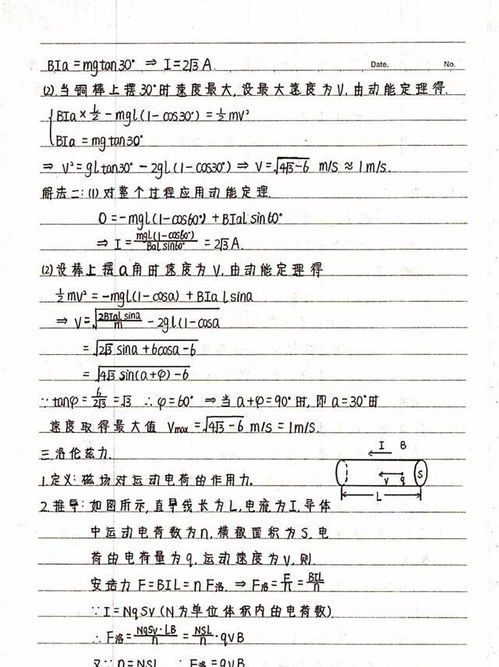 BIa = mgtan30° ⇒ I = 2√3 A.
Date. No.
(2) 当铜棒上摆30°时速度最大, 设最大速度为V, 由动能定理得.
{BIa × L/2 - mgl(1-cos30°) = ½mv²
BIa = mgtan30°
⇒ V² = gltan30° - 2gl(1-cos30°) ⇒ V = √(4√3-6) m/s ≈ 1m/s.
解法二: (1) 对整个过程应用动能定理.
0 = -mgl(1-cos60°) + BIalsin60°
⇒ I = mgl(1-cos60°)/Balsin60° = 2√3 A.
(2) 设棒上摆α角时速度为V, 由动能定理得
½mv² = -mgl(1-cosα) + BIaLsinα
⇒ V = √(2BIaLsinα/m - 2gl(1-cosα
= √(2√3 sinα + 6cosα - 6
= √(4√3 sin(α+φ) - 6
∵ tanφ = 6/2√3 = √3 ∴ φ = 60° ⇒ 当α+φ = 90°时, 即α = 30°时
速度取得最大值 Vmax = √(4√3-6) m/s = 1m/s.
三. 洛伦兹力.
I B
1. 定义: 磁场对运动电荷的作用力.
V q S
L
2. 推导: 如图所示, 直导线长为L, 电流为I, 导体
中运动电荷数为n, 横截面积为S, 电
荷的电荷量为q, 运动速度为V, 则
安培力 F = BIL = nF洛 ⇒ F洛 = F/n = BIL/n
∵ I = NqSv (N为单位体积内的电荷数)
∴ F洛 = NqSv·LB/n = NSL/n · qvB
又∵ n = NSL ∴ F洛 = qvB